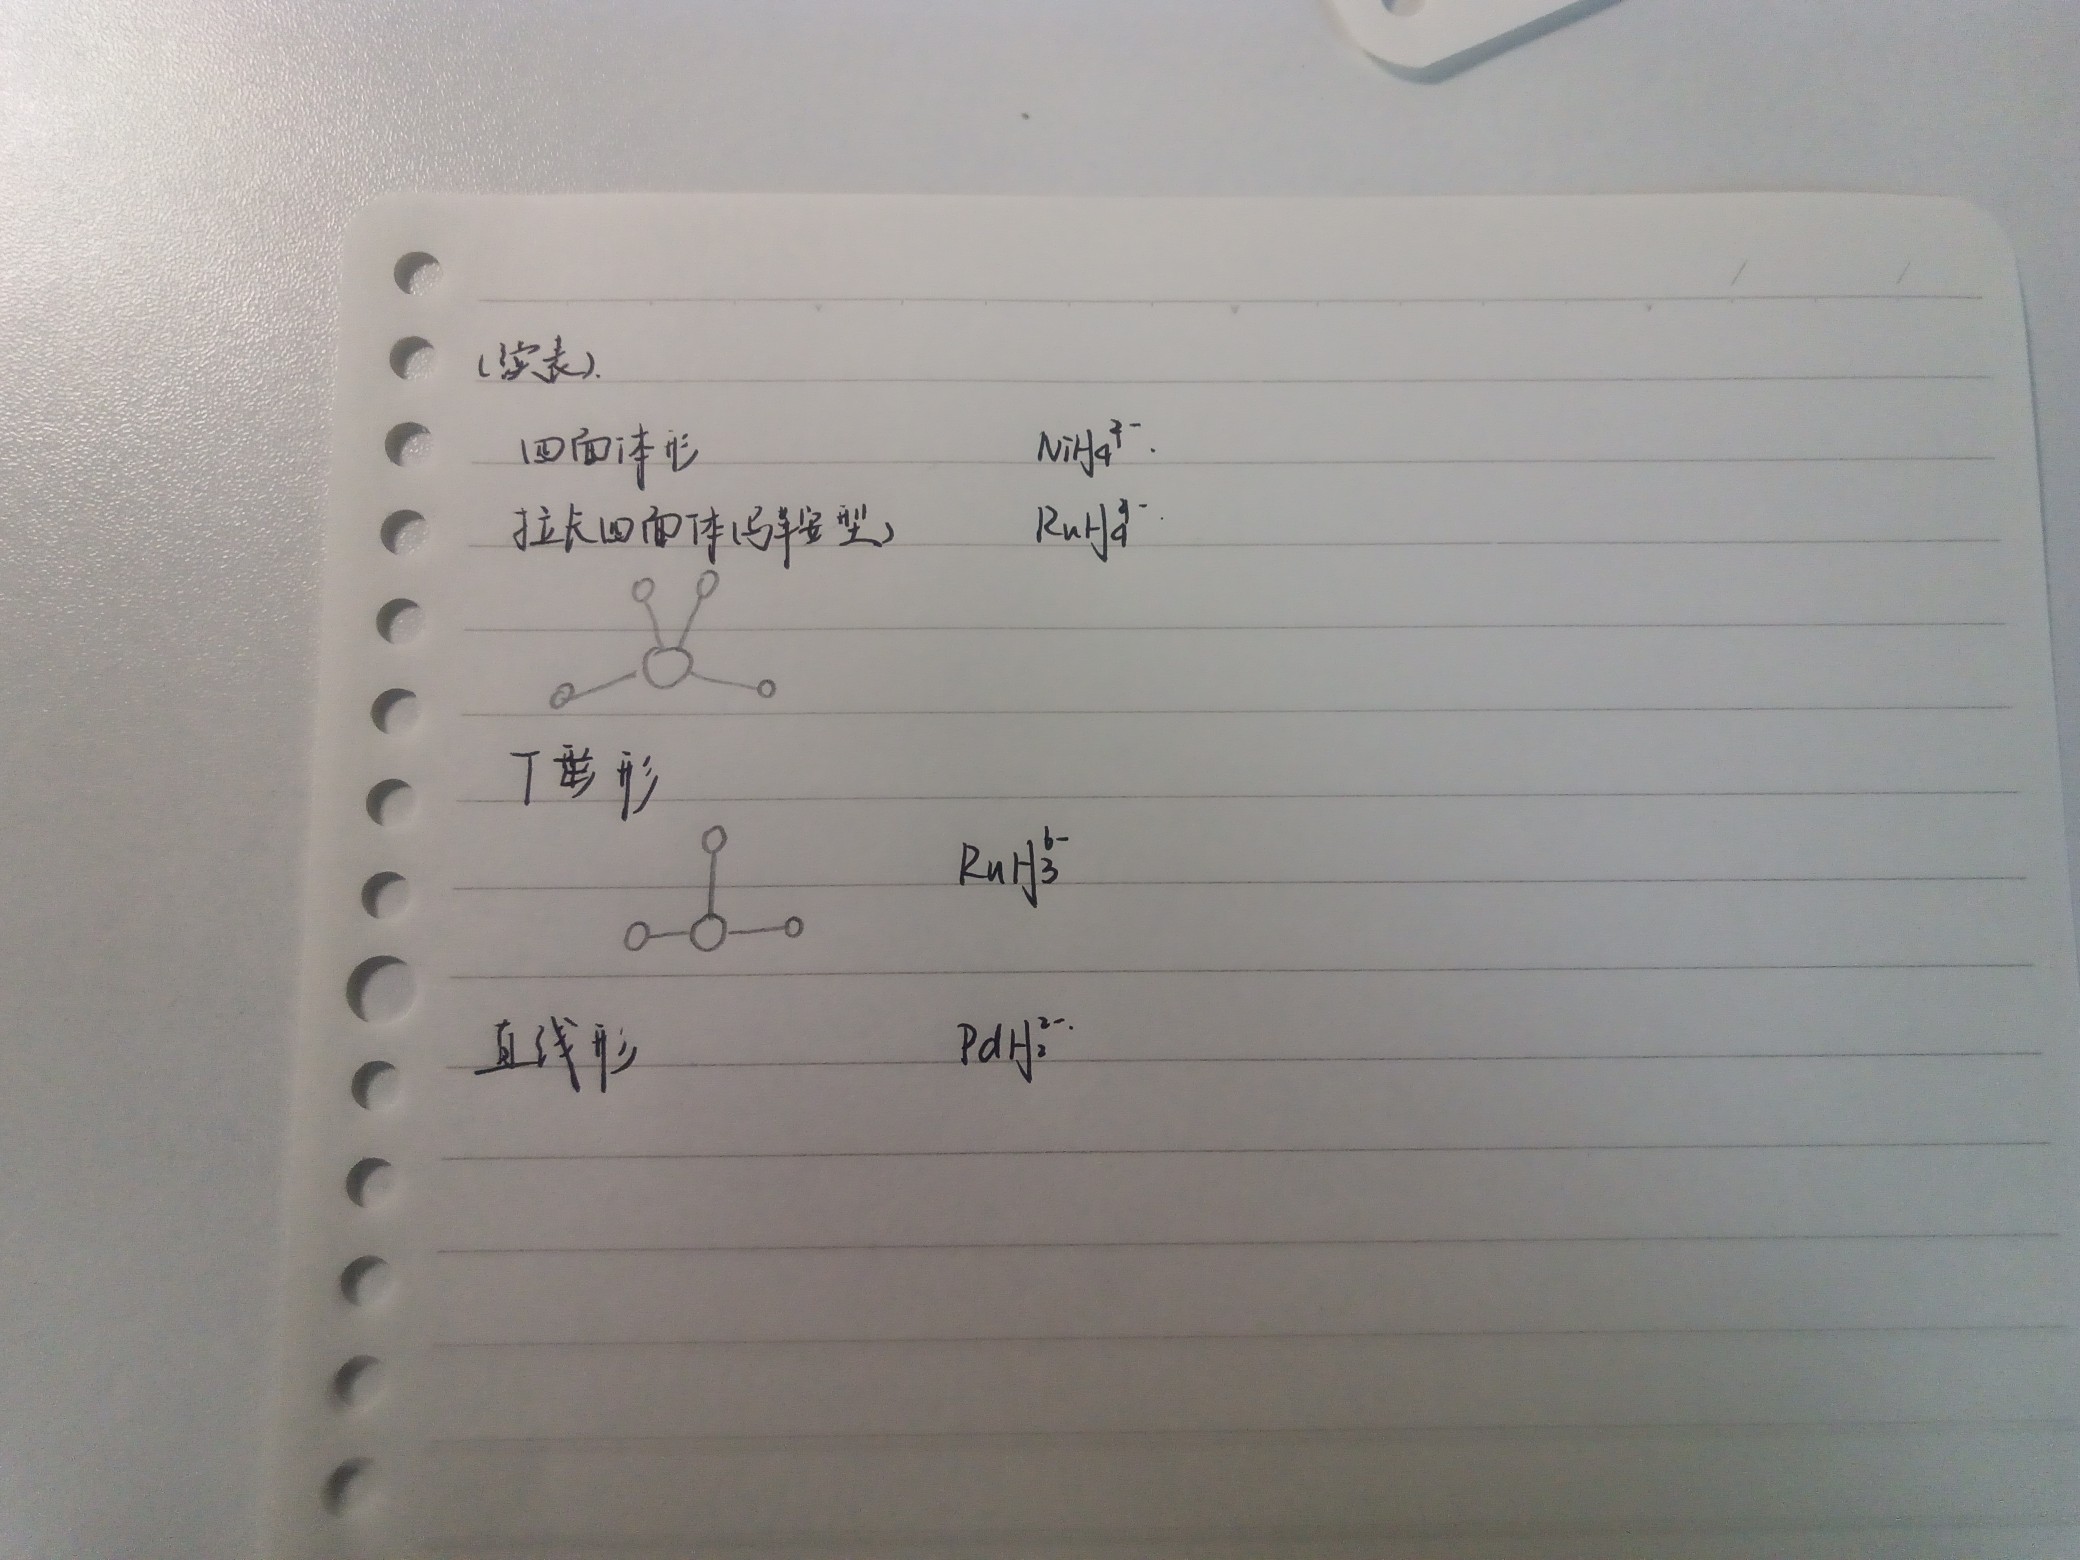 (续表).
四面体形 NiH₄⁴⁻.
拉长四面体(马鞍型) RuH₄⁴⁻.
T 形
RuH₃⁶⁻
直线形 PdH₂²⁻.